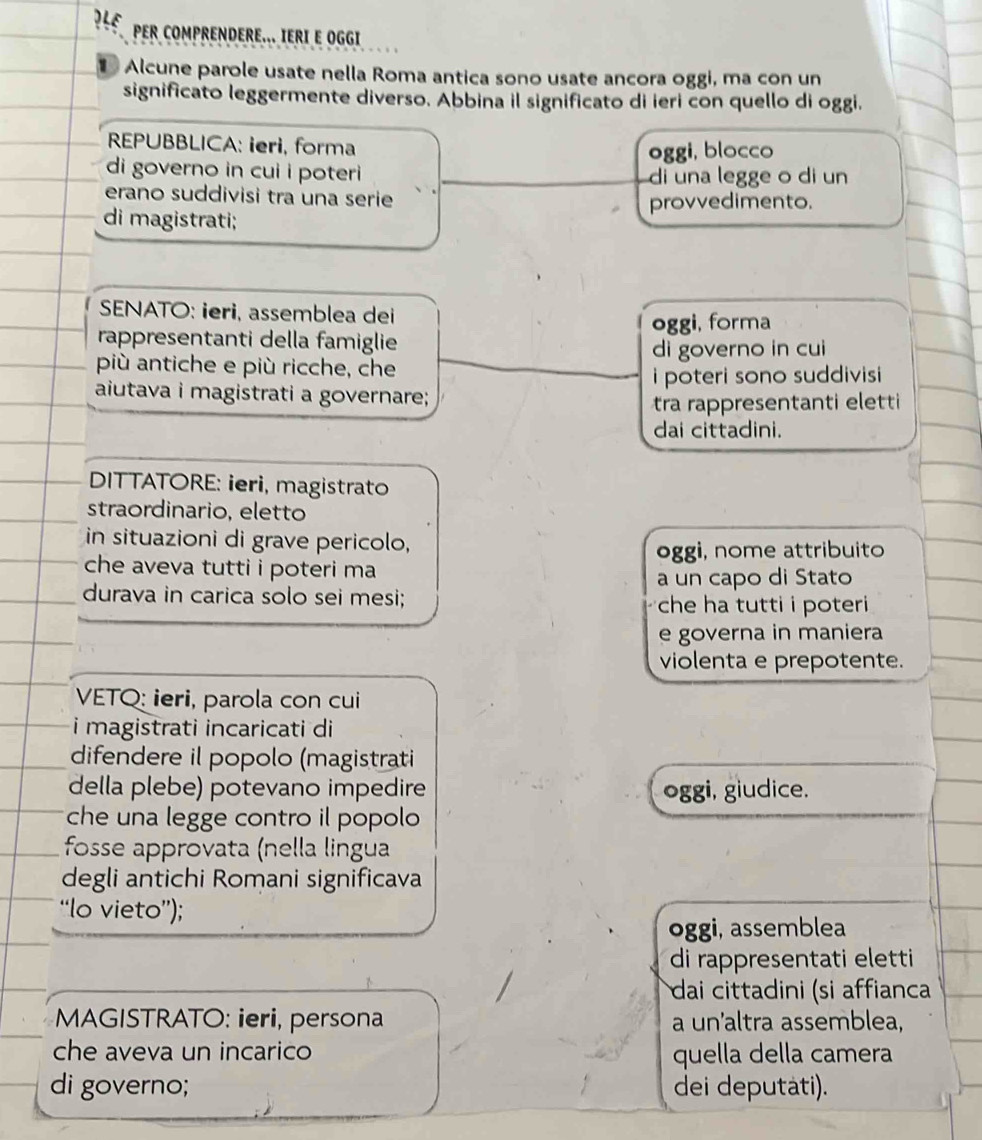 PER COMPRENDERE... IERI E OGGI
1 Alcune parole usate nella Roma antica sono usate ancora oggi, ma con un
significato leggermente diverso. Abbina il significato di ieri con quello di oggi.
REPUBBLICA: ieri, forma
di governo in cui i poteri
erano suddivisi tra una serie
di magistrati;
oggi, blocco
di una legge o di un
provvedimento.
SENATO: ieri, assemblea dei
rappresentanti della famiglie
più antiche e più ricche, che
aiutava i magistrati a governare;
oggi, forma
di governo in cui
i poteri sono suddivisi
tra rappresentanti eletti
dai cittadini.
DITTATORE: ieri, magistrato
straordinario, eletto
in situazioni di grave pericolo,
che aveva tutti i poteri ma
durava in carica solo sei mesi;
oggi, nome attribuito
a un capo di Stato
che ha tutti i poteri
e governa in maniera
violenta e prepotente.
VETO: ieri, parola con cui
i magistrati incaricati di
difendere il popolo (magistrati
della plebe) potevano impedire
che una legge contro il popolo
fosse approvata (nella lingua
degli antichi Romani significava
“lo vieto”);
oggi, giudice.
MAGISTRATO: ieri, persona
che aveva un incarico
di governo;
oggi, assemblea
di rappresentati eletti
dai cittadini (si affianca
a un'altra assemblea,
quella della camera
dei deputati).